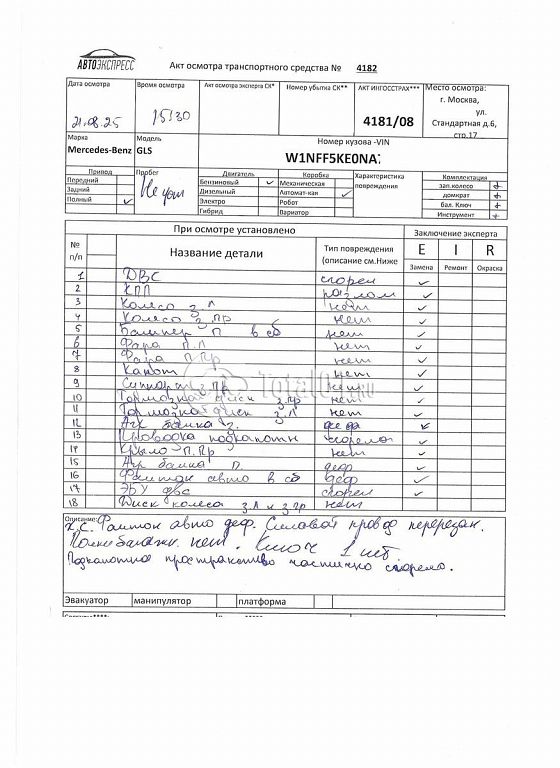 АВТОЭКСПРЕСС
Акт осмотра транспортного средства № 4182
Дата осмотра
Время осмотра
Акт осмотра эксперта СК*
Номер убытка СК**
АКТ ИНГОССТРАХ***
Место осмотра:
21.08.25
15:30
4181/08
г. Москва,
ул.
Стандартная д.6,
стр.17
Марка
Модель
Номер кузова -VIN
Mercedes-Benz
GLS
W1NFF5KE0NA
Привод
Пробег
Двигатель
Коробка
Характеристика повреждения
Комплектация
Передний
Бензиновый ✓
Механическая
зап.колесо +
Задний
Дизельный
Автомат-кая ✓
домкрат +
Полный ✓
Электро
Робот
бал. Ключ +
Гибрид
Вариатор
Инструмент +
При осмотре установлено
Заключение эксперта
№ п/п
Название детали
Тип повреждения (описание см.Ниже
E I R
Замена
Ремонт
Окраска
1 ДВС сгорел ✓
2 КПП разлом ✓
3 Колесо з.л нет ✓
4 Колесо з.пр нет ✓
5 Бампер п в сб нет ✓
6 Фара п.л нет ✓
7 Фара п.пр нет ✓
8 Капот нет ✓
9 Суппорт з.пр нет ✓
10 Тормозной диск з.пр нет ✓
11 Тормозной диск з.л нет ✓
12 балка з. ✓
13 Проводка подкапотн сгорела ✓
14 Крыло п.пр нет ✓
15 балка п. деф ✓
16 авто в сб деф ✓
17 ЭБУ двс сгорел ✓
18 Диск колеса з.л и з.пр нет
Описание:
авто деф. Силовой провод перерезан.
нет. Ключ 1 шт
Подкапотное пространство частично сгорело.
Эвакуатор
манипулятор
платформа
Total01.ru